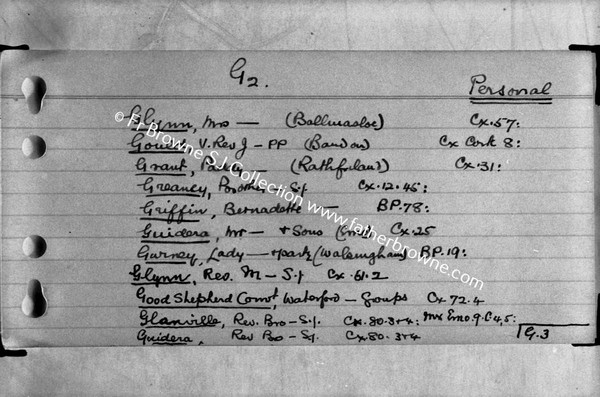 G2.
Personal
Glynn, Mrs — (Ballinasloe) Cx.57:
V. Rev J - PP (Bandon) Cx Cork 8:
Grant, (Rathfriland) Cx.31:
Greaney, Brother - S.J Cx.12.45:
Griffin, Bernadette — BP.78:
Guidera, Mr — + Sons Cx.25
Gurney, Lady — + party (Walsingham) BP.19:
Glynn, Rev. M - S.J Cx.61.2
Good Shepherd Convt, Waterford - Groups Cx 72.4
Glanville, Rev. Bro - S.J. Cx.80.3+4: Mx Emo.9.C4,5:
Guidera, Rev Bro - S.J. Cx 80.3+4
G.3
© Fr Browne S.J. Collection www.fatherbrowne.com